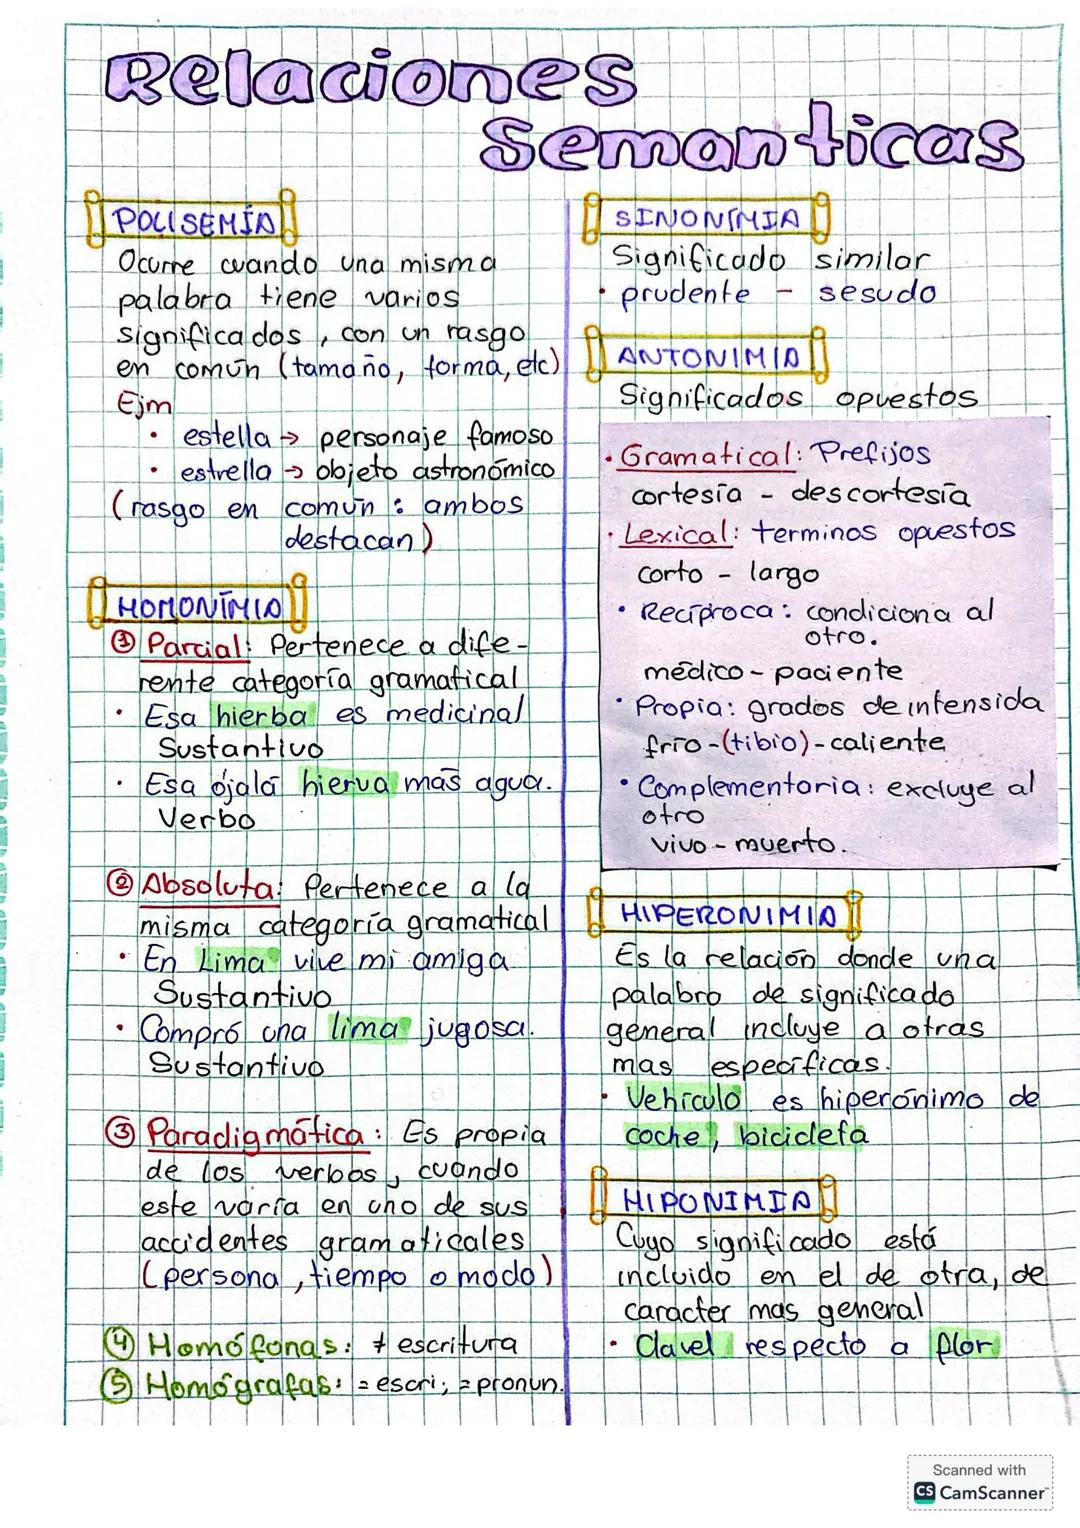 Relaciones
Semanticas
POLISEMÍA
Ocurre cuando una misma
palabra tiene varios
significados, con un rasgo
en común (tamaño, forma, etc)
Ejm
• estella → personaje famoso
• estrella → objeto astronómico
(rasgo en común: ambos
destacan)
HOMONÍMIA
① Parcial: Pertenece a dife-
rente categoría gramatical
• Esa hierba es medicinal
Sustantivo
• Esa ójalá hierva más agua.
Verbo
② Absoluta: Pertenece a la
misma categoría gramatical
• En Lima vive mi amiga
Sustantivo
• Compró una lima jugosa.
Sustantivo
③ Paradigmática: Es propia
de los verbos, cuando
este varía en uno de sus
accidentes gramaticales
(persona, tiempo o modo)
④ Homófonas: ≠ escritura
⑤ Homógrafas: = escri; = pronun.
SINONÍMIA
Significado similar
• prudente - sesudo
ANTONIMIA
Significados opuestos
• Gramatical: Prefijos
cortesía - descortesía
• Lexical: terminos opuestos
corto - largo
• Recíproca: condiciona al
otro.
médico - paciente
• Propia: grados de intensida
frío - (tibio) - caliente
• Complementaria: excluye al
otro
vivo - muerto.
HIPERONIMIA
Es la relación donde una
palabra de significado
general incluye a otras
mas específicas.
• Vehículo es hiperónimo de
coche, bicicleta
HIPONIMIA
Cuyo significado está
incluido en el de otra, de
caracter mas general
• Clavel respecto a flor
Scanned with
CS CamScanner